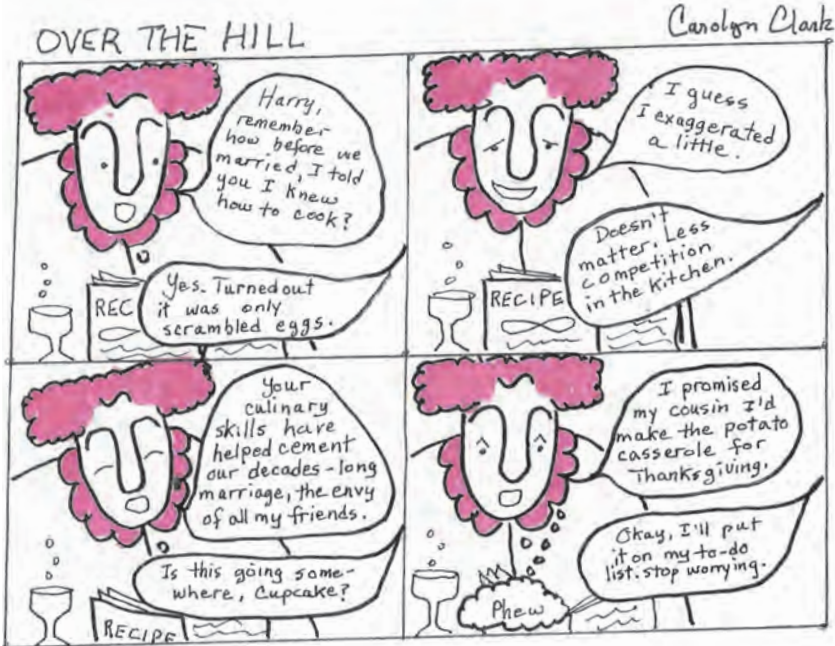 OVER THE HILL
Carolyn Clark
Harry,
remember
how before we
married, I told
you I knew
how to cook?
Yes. Turned out
it was only
scrambled eggs.
REC
I guess
I exaggerated
a little.
Doesn't
matter. Less
competition
in the kitchen.
RECIPE
Your
culinary
skills have
helped cement
our decades-long
marriage, the envy
of all my friends.
Is this going some-
where, Cupcake?
RECIPE
I promised
my cousin I'd
make the potato
casserole for
Thanksgiving.
Okay, I'll put
it on my to-do
list. Stop worrying.
Phew